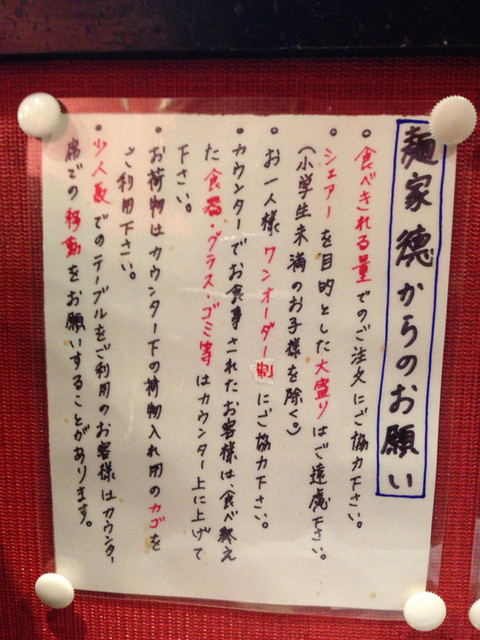 麺家徳からのお願い
• 食べきれる量でのご注文にご協力下さい。
• シェアーを目的とした大盛りはご遠慮下さい。
(小学生未満のお子様を除く。)
• お一人様ワンオーダー制にご協力下さい。
• カウンターでお食事されたお客様は、食べ終え
た食器・グラス・ゴミ等はカウンター上に上げて
下さい。
• お荷物はカウンター下の荷物入れ用のカゴを
ご利用下さい。
• 少人数でのテーブルをご利用のお客様はカウンター
席での移動をお願いすることがあります。